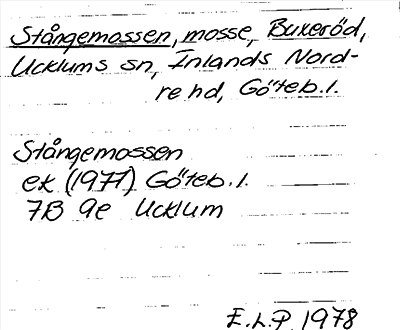 Stångemossen, mosse, Buxeröd,
Ucklums sn, Inlands Nord-
re hd, Göteb. l.
Stångemossen
ek (1977) Göteb. l.
7B 9e Ucklum
E.L.P. 1978